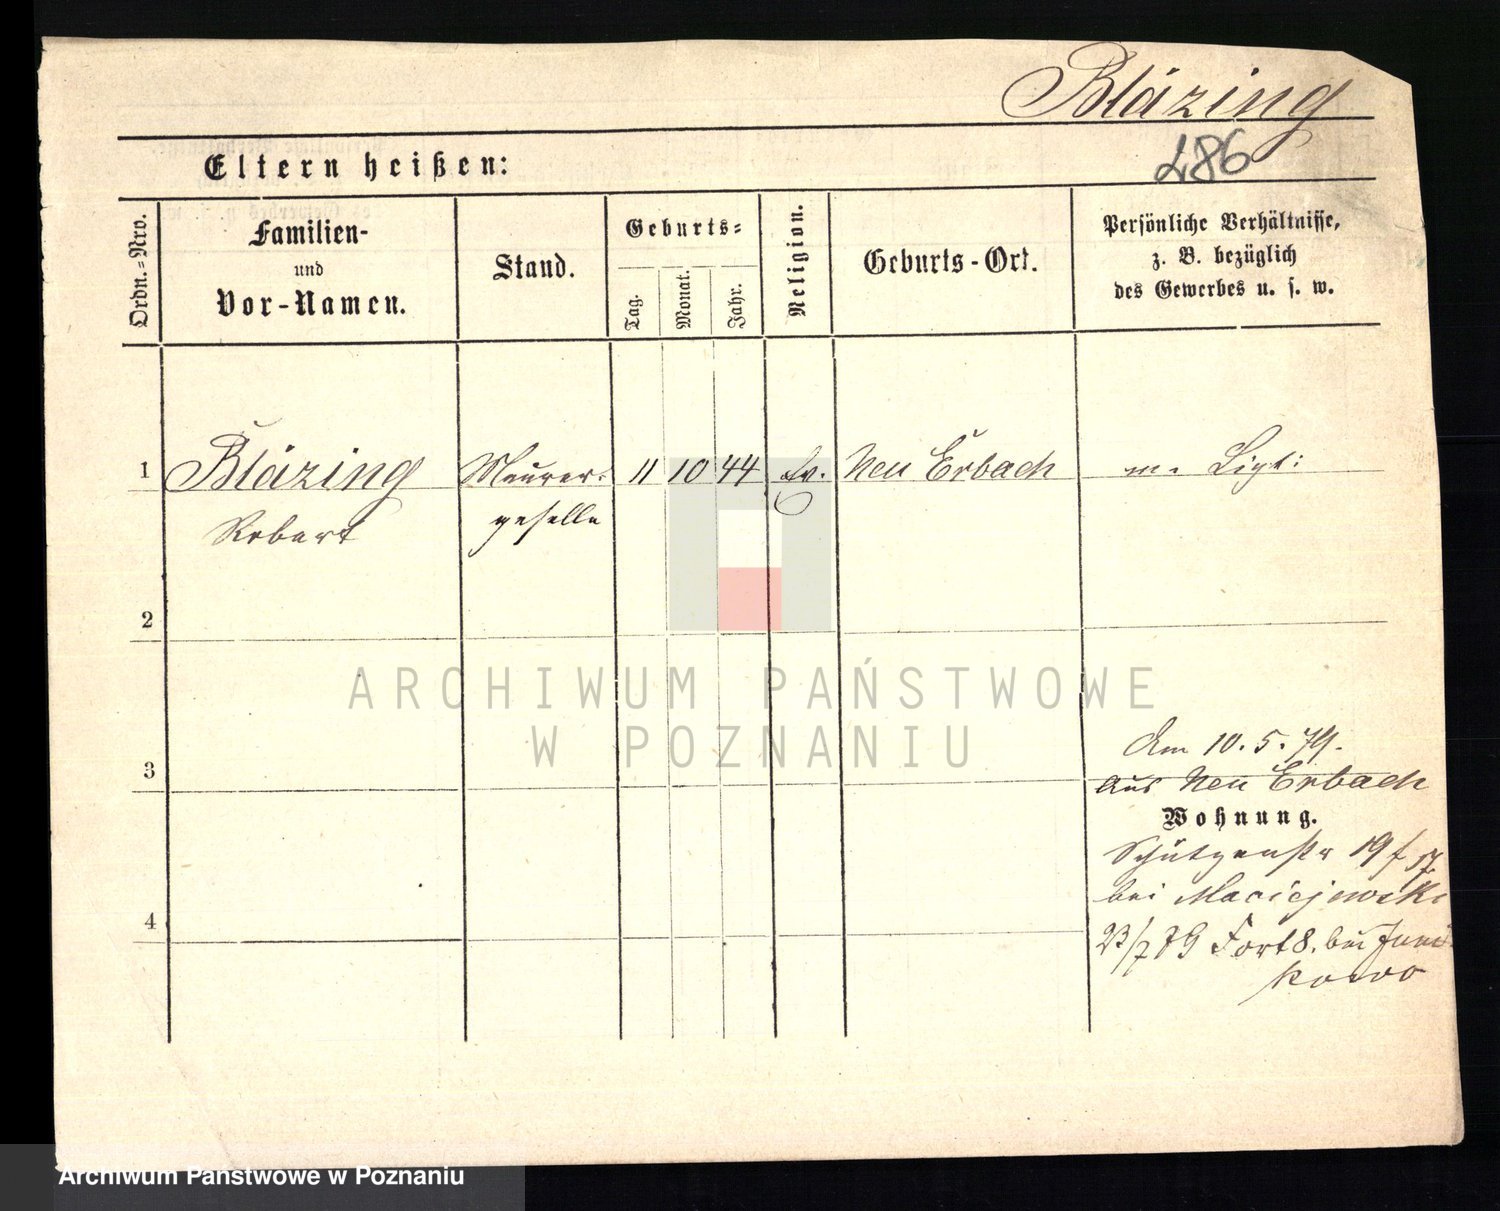 Bläzing
286
Eltern heißen:
Ordn.=Nro.
Familien-
und
Vor-Namen.
Stand.
Geburts=
Tag.
Monat.
Jahr.
Religion.
Geburts-Ort.
Persönliche Verhältnisse,
z. B. bezüglich
des Gewerbes u. s. w.
1 Bläzing Maurer- 11 10 44 ev. Neu Erbach m. Ligt:
Robert geselle
2
ARCHIWUM PAŃSTWOWE
W POZNANIU
Am 10. 5. 79.
3 aus Neu Erbach
Wohnung.
Schützenstr 19 f
bei Maciejewski
4 23/7 79 Fort 8. bei
Archiwum Państwowe w Poznaniu